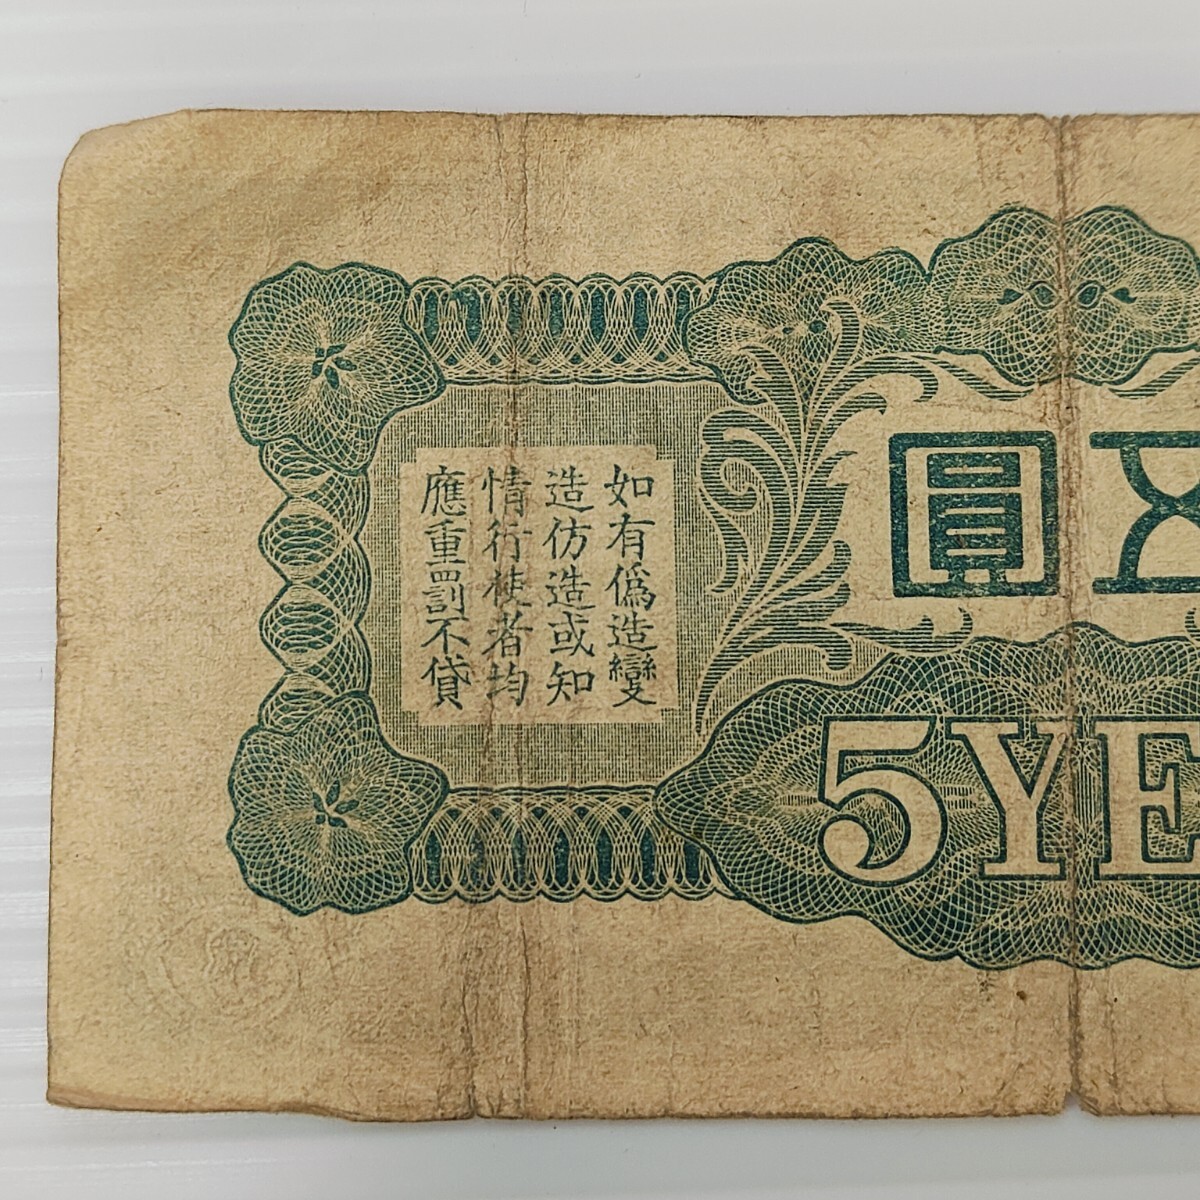 如有僞造變
造仿造或知
情行使者均
應重罰不貸
五圓
5YE